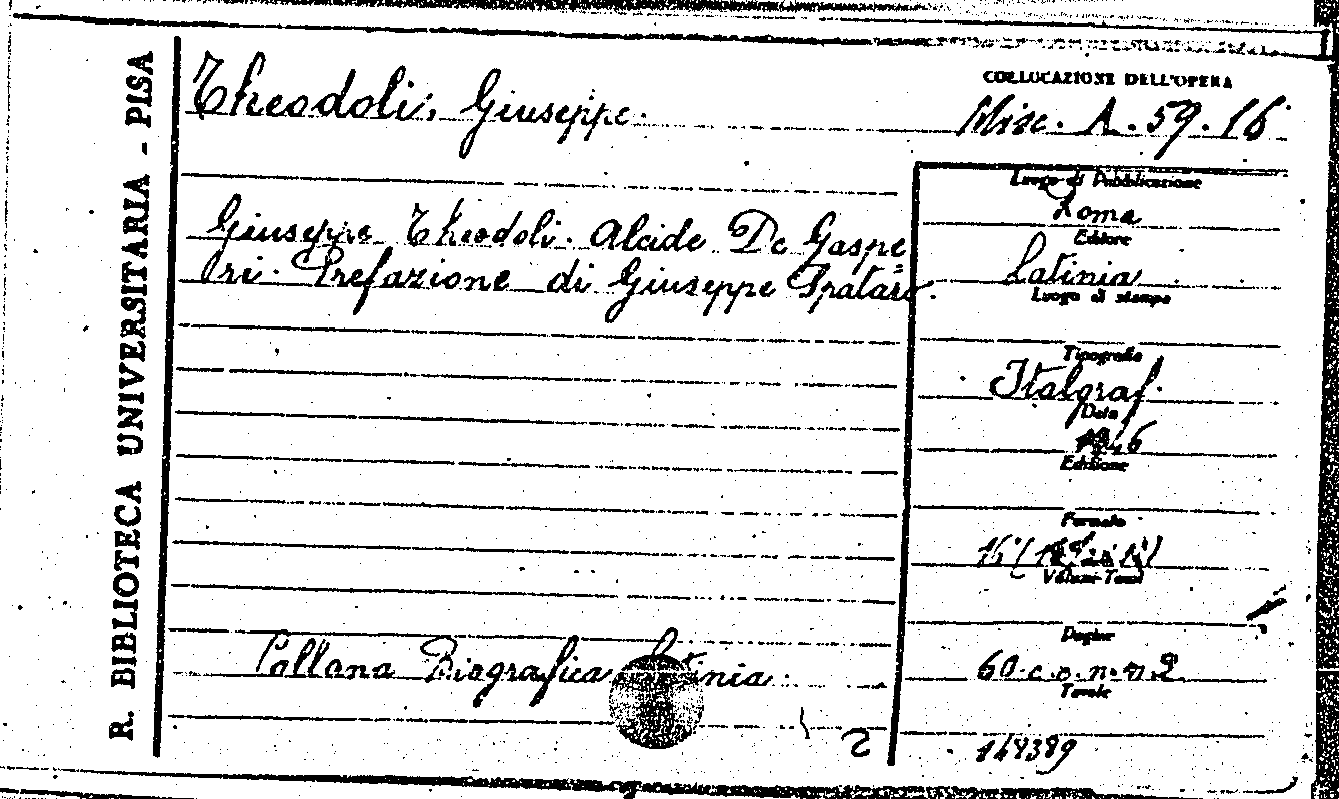 R. BIBLIOTECA UNIVERSITARIA - PISA
Theodoli, Giuseppe.
COLLOCAZIONE DELL'OPERA
Misc. A. 59. 16
Giuseppe Theodoli. Alcide De Gaspe=
ri. Prefazione di Giuseppe Spataro.
Collana Biografica Latinia.
2
Luogo di Pubblicazione
Roma
Editore
Latinia
Luogo di stampa
Tipografia
Italgraf.
Data
1946
Edizione
Formato
16°
Volumi-Tomi
Pagine
60. c. o. n. n. 2
Tavole
148389